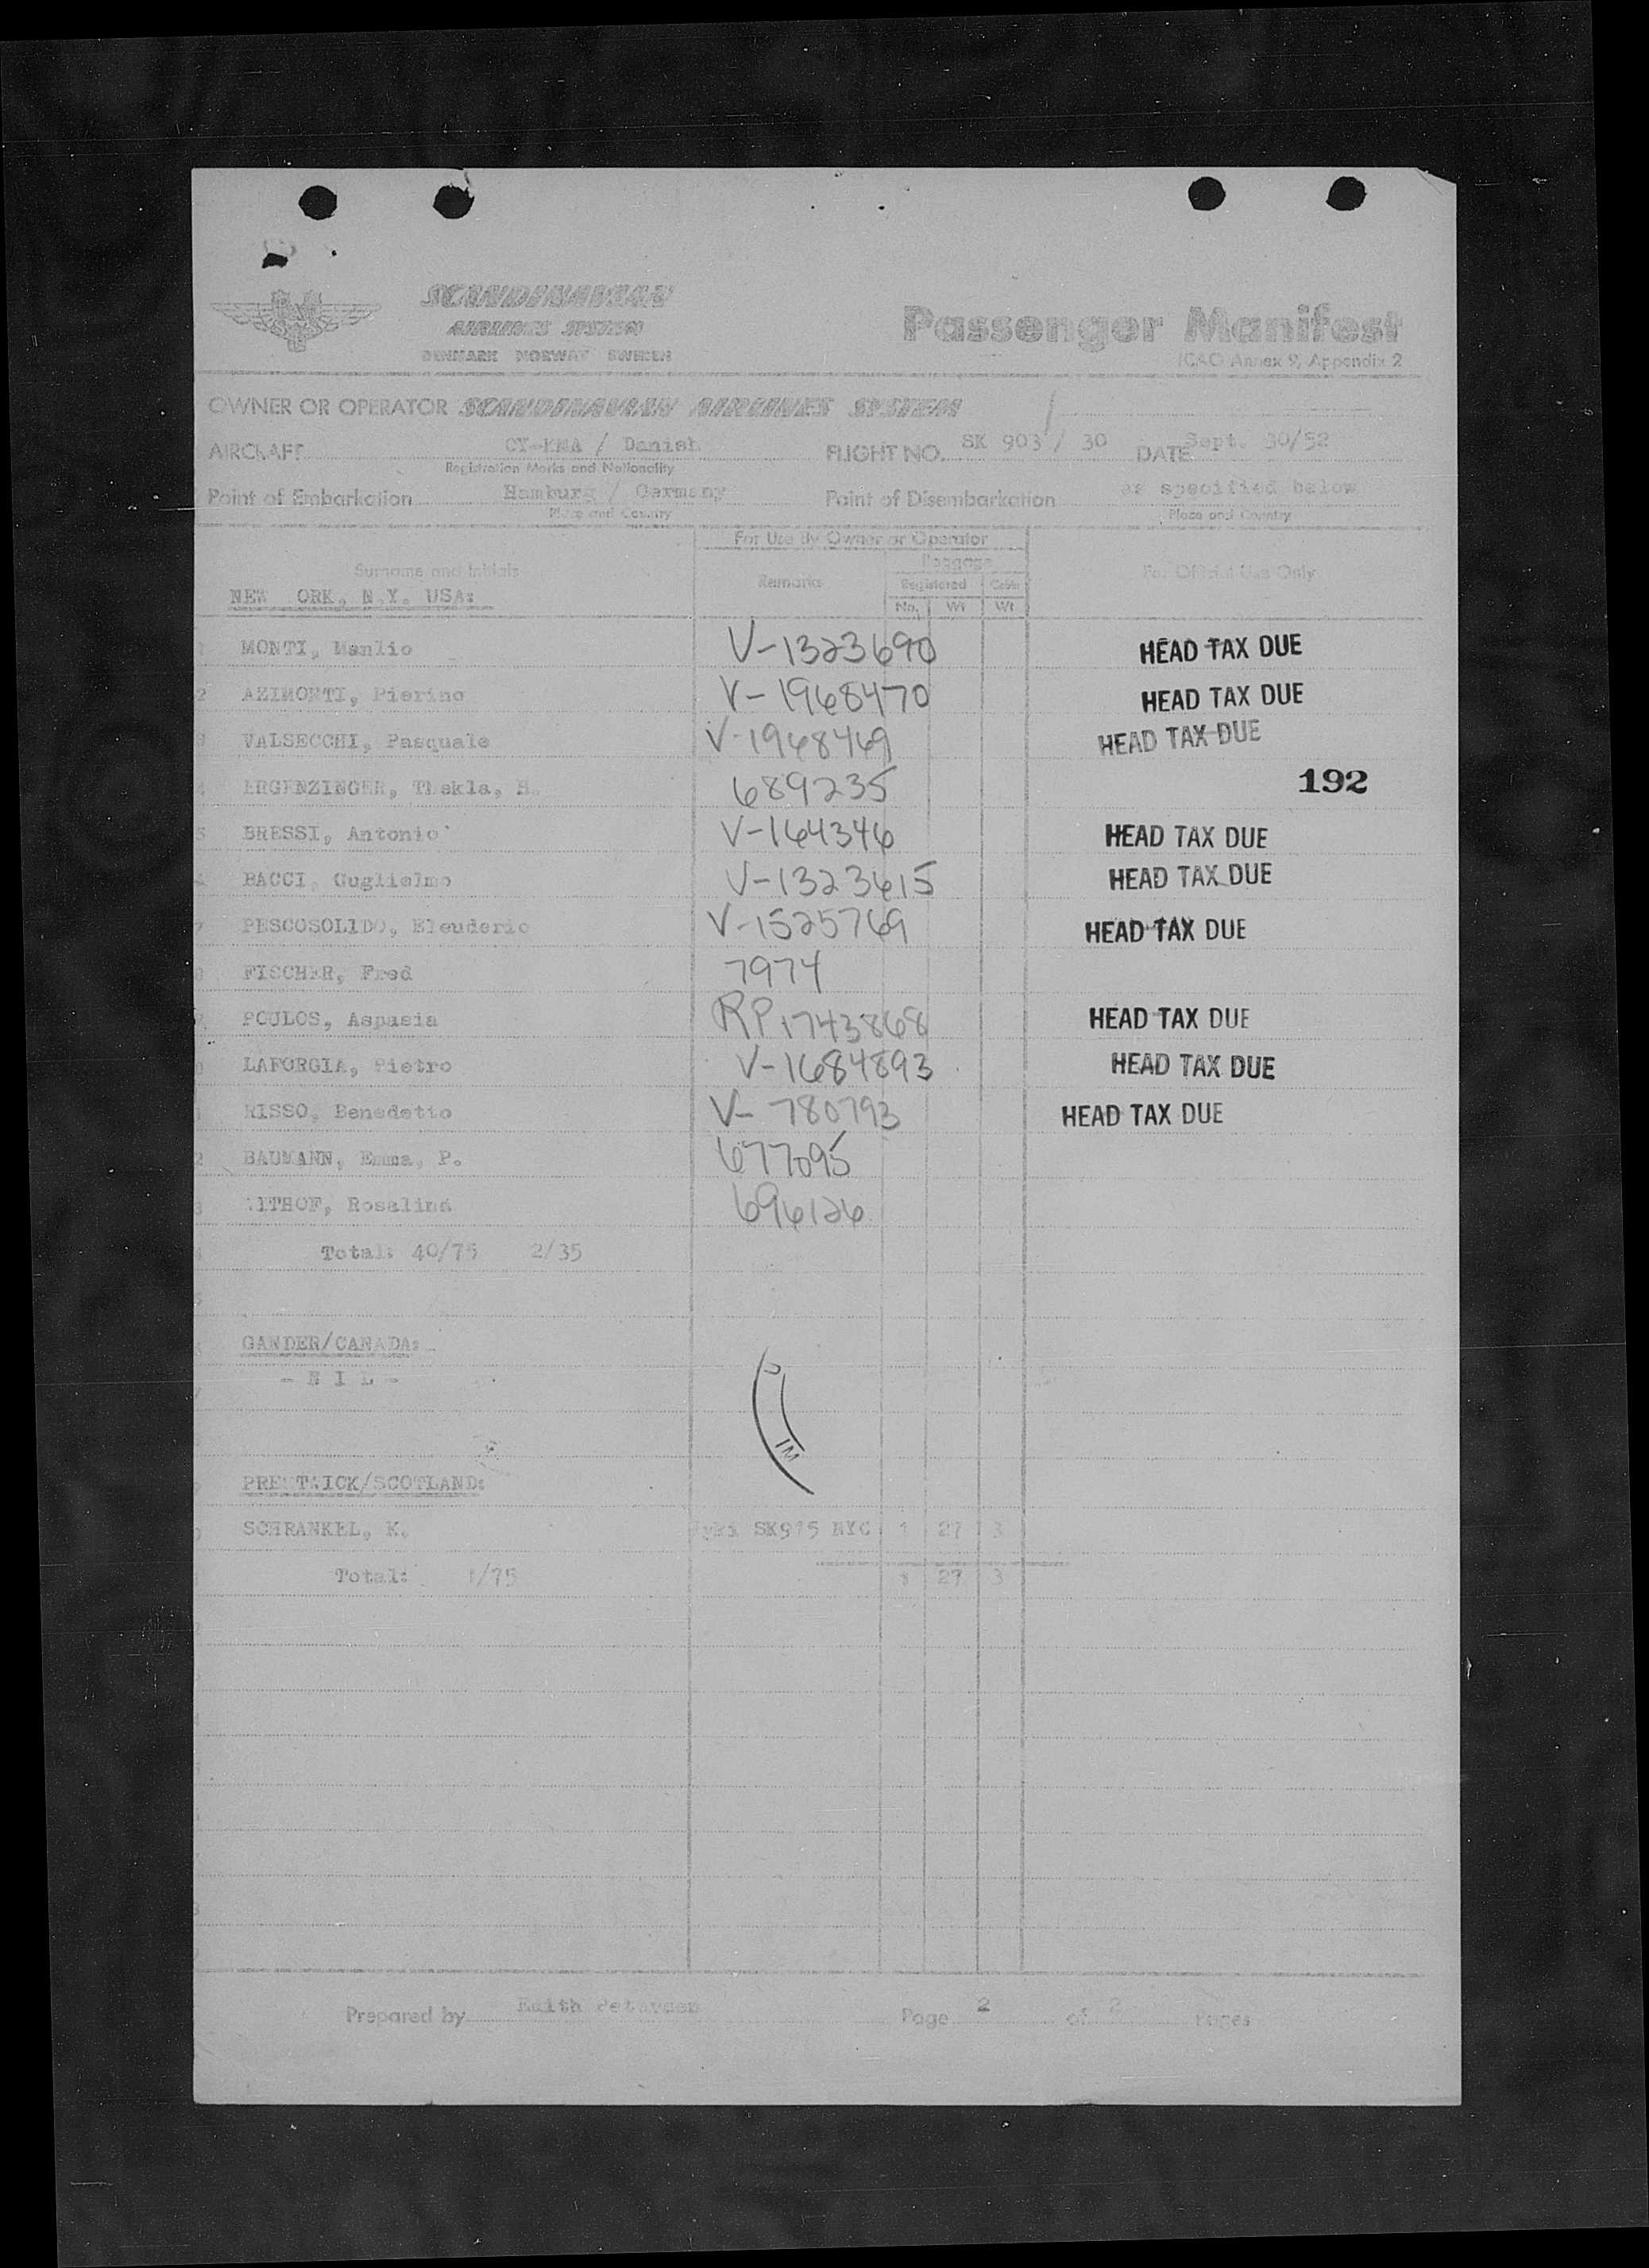 SCANDINAVIAN
AIRLINES SYSTEM
DENMARK NORWAY SWEDEN
Passenger Manifest
ICAO Annex 9, Appendix 2
OWNER OR OPERATOR SCANDINAVIAN AIRLINES SYSTEM
AIRCRAFT / Danish FLIGHT NO. SK 903 / 30 DATE Sept. 30/52
Registration Marks and Nationality
Point of Embarkation Hamburg / Germany Point of Disembarkation as specified below
Place and Country Place and Country
For Use By Owner or Operator
Surname and Initials Remarks Baggage For Official Use Only
Registered Cabin
NEW ORK, N.Y. USA: No. Wt Wt
1 MONTI, Manlio V-1323690 HEAD TAX DUE
2 AZIMONTI, Pierino V-1968470 HEAD TAX DUE
3 VALSECCHI, Pasquale V-1968469 HEAD TAX DUE
4 ERGENZINGER, Thekla, H. 689235 192
5 BRESSI, Antonio V-164346 HEAD TAX DUE
BACCI, Guglielmo V-1323615 HEAD TAX DUE
7 PESCOSOLIDO, Eleuderio V-1525769 HEAD TAX DUE
FISCHER, Fred 7974
POULOS, Aspasia RP1743868 HEAD TAX DUE
LAFORGIA, Pietro V-1684893 HEAD TAX DUE
RISSO, Benedetto V-780793 HEAD TAX DUE
2 BAUMANN, Emma, P. 677095
3 ITHOF, Rosalind 696126
Total: 40/75 2/35
GANDER/CANADA:
- N I L -
IM
PRESTWICK/SCOTLAND:
SCHRANKEL, K. SK915 NYC 1 27 3
Total: 1/75 1 27 3
Prepared by Edith Petersen Page 2 of 2 Pages